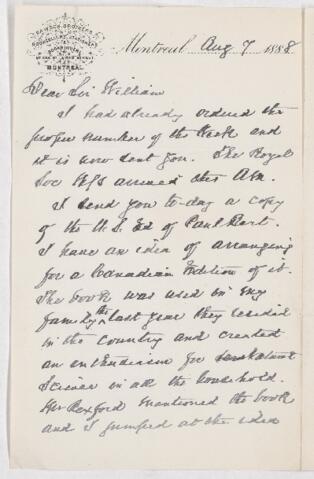 DAWSON BROTHERS
BOOKSELLERS, STATIONERS
MONTREAL
Montreal Aug 7 1888
Dear Sir William
I had already ordered the
proper number of the Week and
it is now sent you. The Royal
Soc arrived this Am.
I send you to-day a copy
of the U.S. Ed of Paul Bert.
I have an idea of arranging
for a Canadian Edition of it.
The book was used in my
family the last year they resided
in the country and created
an enthusiasm for
Science in all the household.
Mr Rexford mentioned the book
and I jumped at the idea